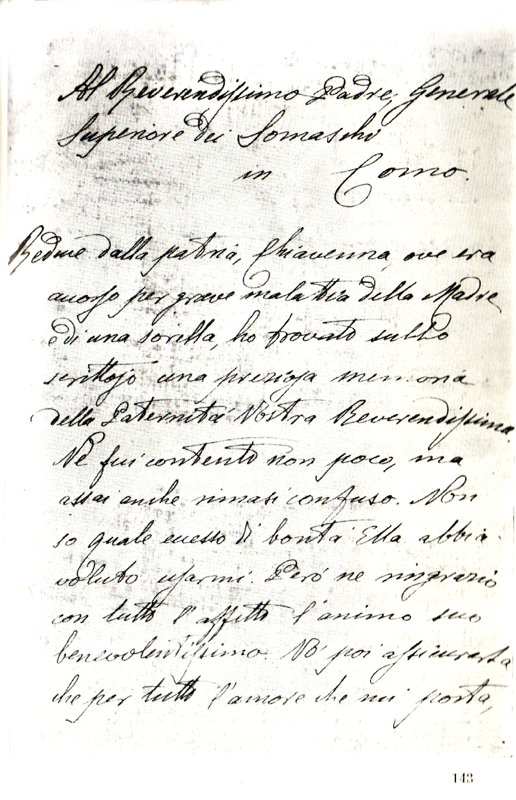 Al Reverendissimo Padre, Generale
Superiore dei Somaschi
in Como.
Reduce dalla patria, Chiavenna, ove era
accorso per grave malattia della Madre
e di una sorella, ho trovato sullo
scrittojo una preziosa memoria
della Paternità Vostra Reverendissima.
Ne fui contento non poco, ma
assai anche rimasi confuso. Non
so quale eccesso di bontà Ella abbia
voluto usarmi. Però ne ringrazio
con tutto l'affetto l'animo suo
benevolentissimo. Vo' poi assicurarla
che per tutto l'amore che mi porta,
143